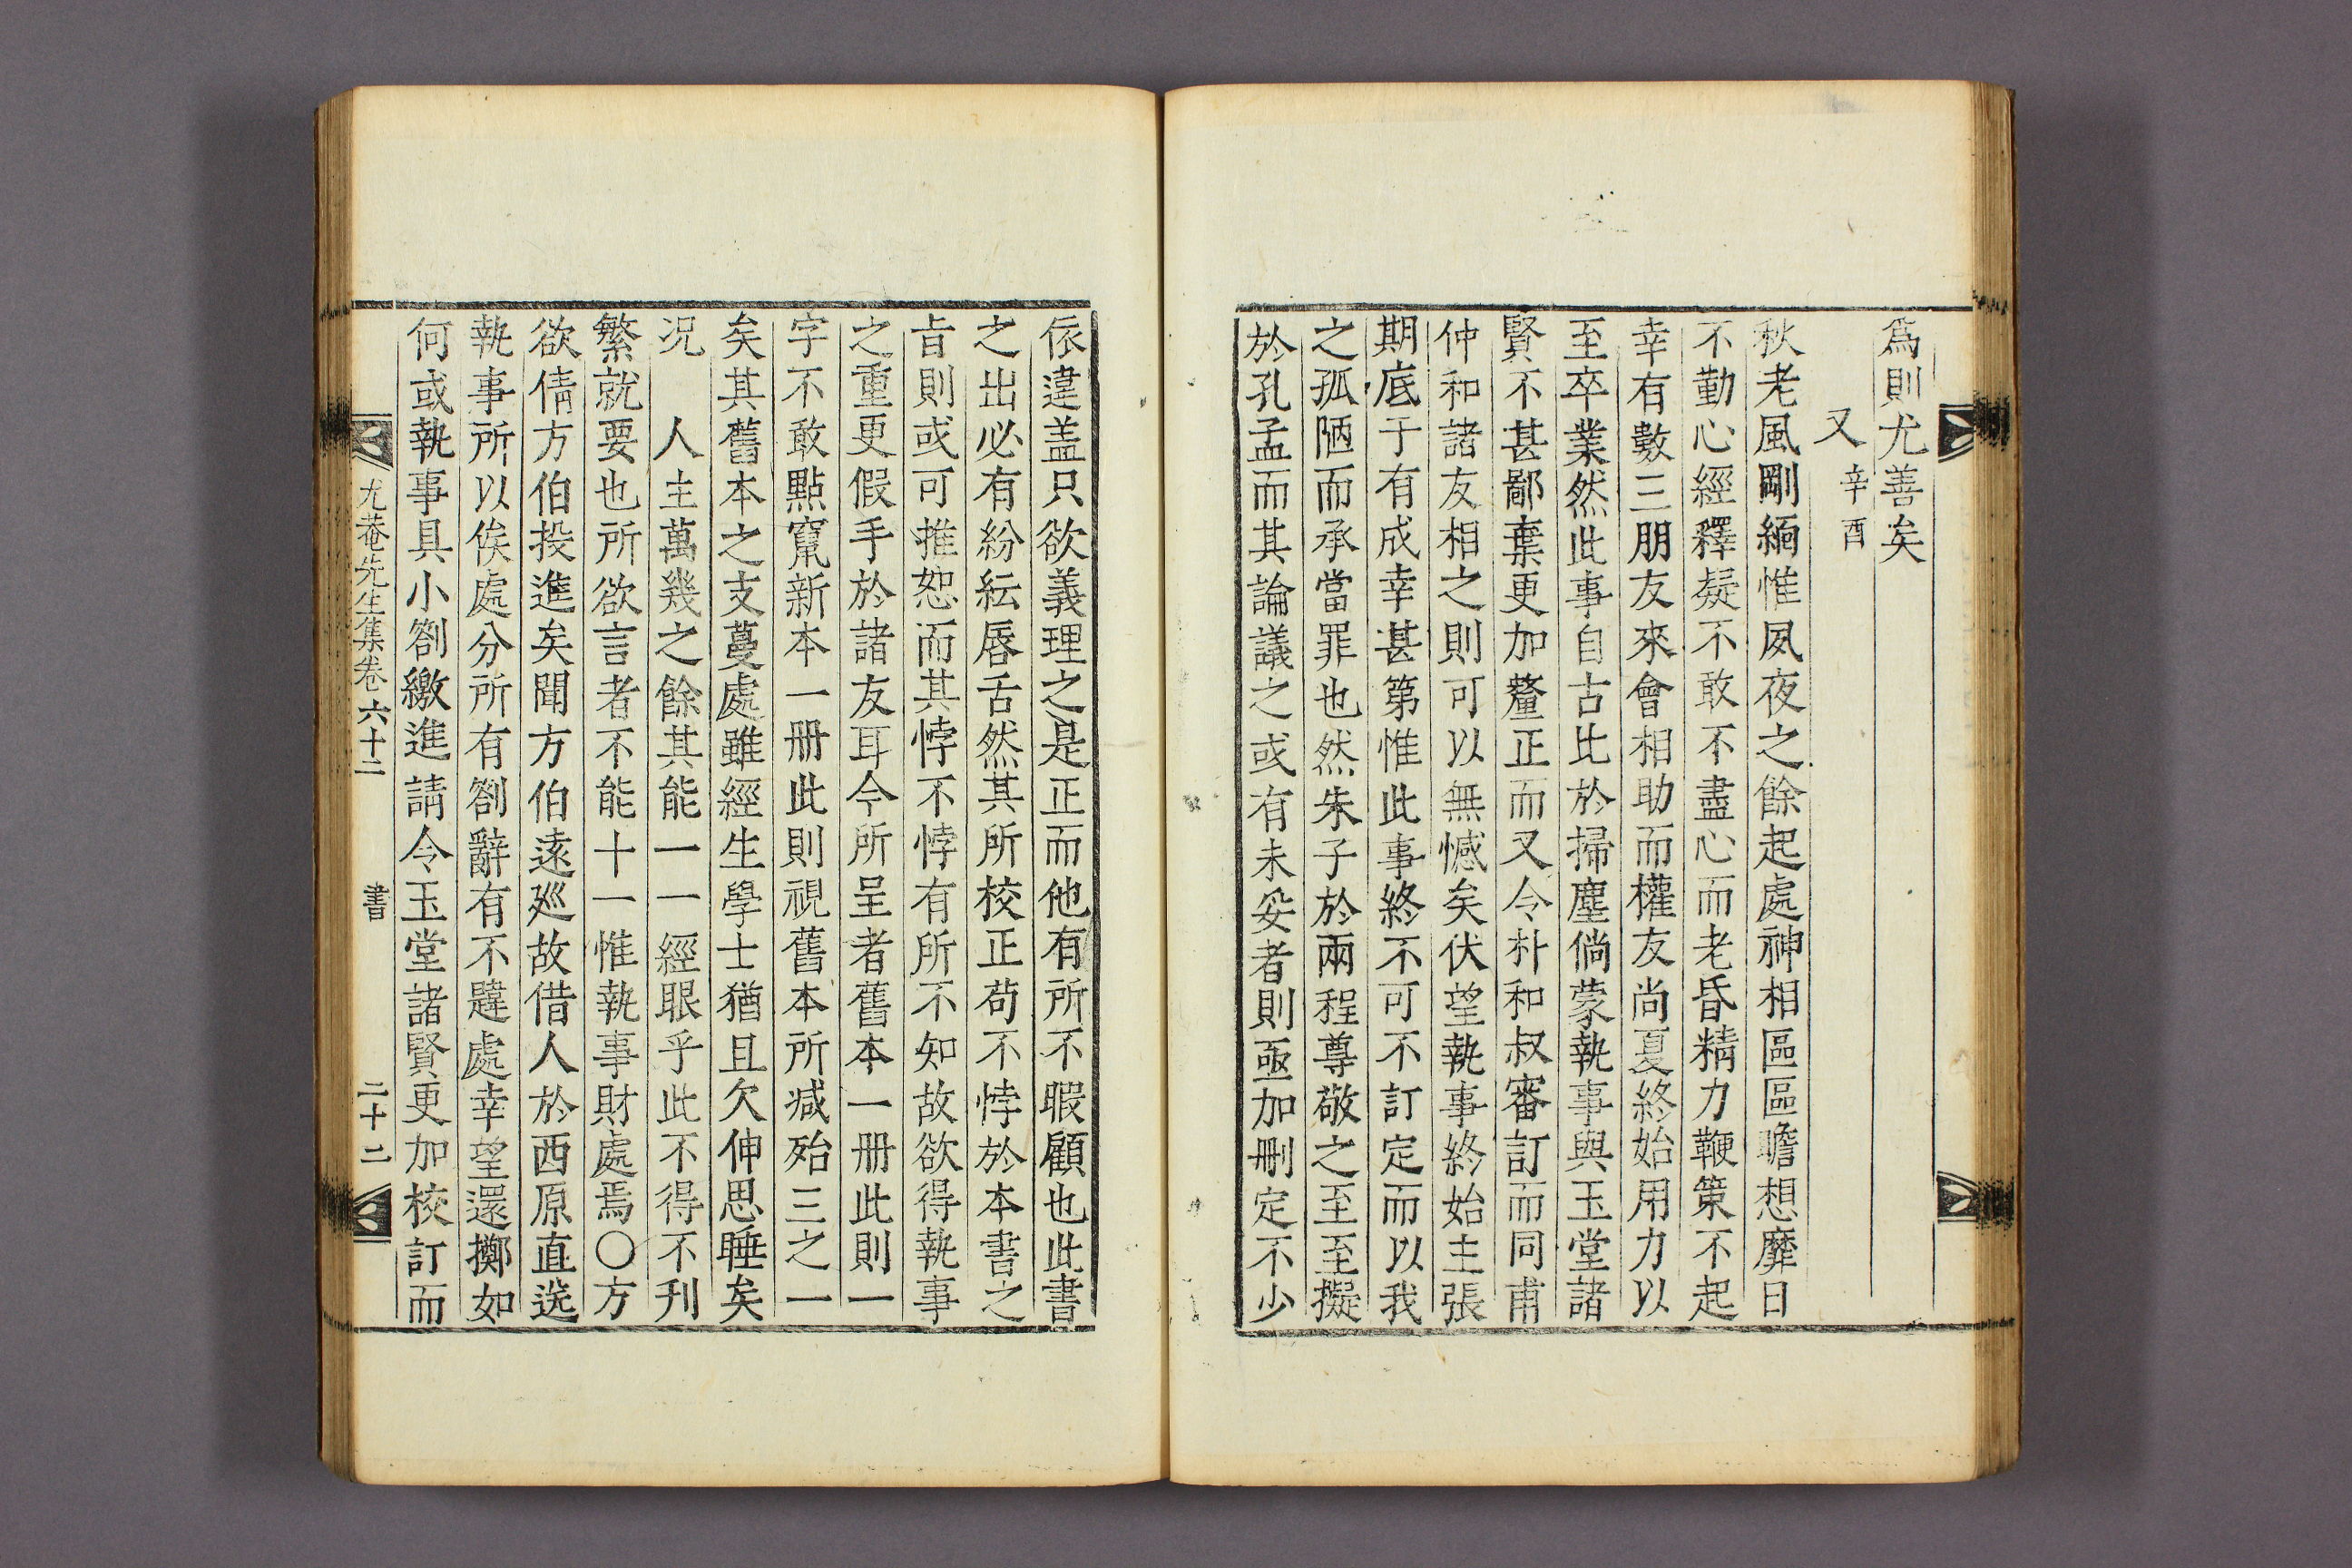 爲則尤善矣
又 辛酉
秋老風剛緬惟夙夜之餘起處神相區區瞻想靡日
不勤心經釋疑不敢不盡心而老昏精力鞭策不起
幸有數三朋友來會相助而權友尚夏終始用力以
至卒業然此事自古比於掃塵倘蒙執事與玉堂諸
賢不甚鄙棄更加釐正而又令朴和叔審訂而同甫
仲和諸友相之則可以無憾矣伏望執事終始主張
期底于有成幸甚第惟此事終不可不訂定而以我
之孤陋而承當罪也然朱子於兩程尊敬之至至擬
於孔孟而其論議之或有未妥者則亟加刪定不少
依違盖只欲義理之是正而他有所不暇顧也此書
之出必有紛紜唇舌然其所校正苟不悖於本書之
㫖則或可推恕而其悖不悖有所不知故欲得執事
之重更假手於諸友耳今所呈者舊本一冊此則一
字不敢點竄新本一冊此則視舊本所减殆三之一
矣其舊本之支蔓處雖經生學士猶且欠伸思睡矣
况 人主萬幾之餘其能一一經眼乎此不得不刋
繁就要也所欲言者不能十一惟執事財處焉〇方
欲倩方伯投進矣聞方伯遠廵故借人於西原直送
執事所以俟處分所有劄辭有不韙處幸望還擲如
何或執事具小劄繳進請令玉堂諸賢更加校訂而
尤菴先生集卷六十二 書 二十二